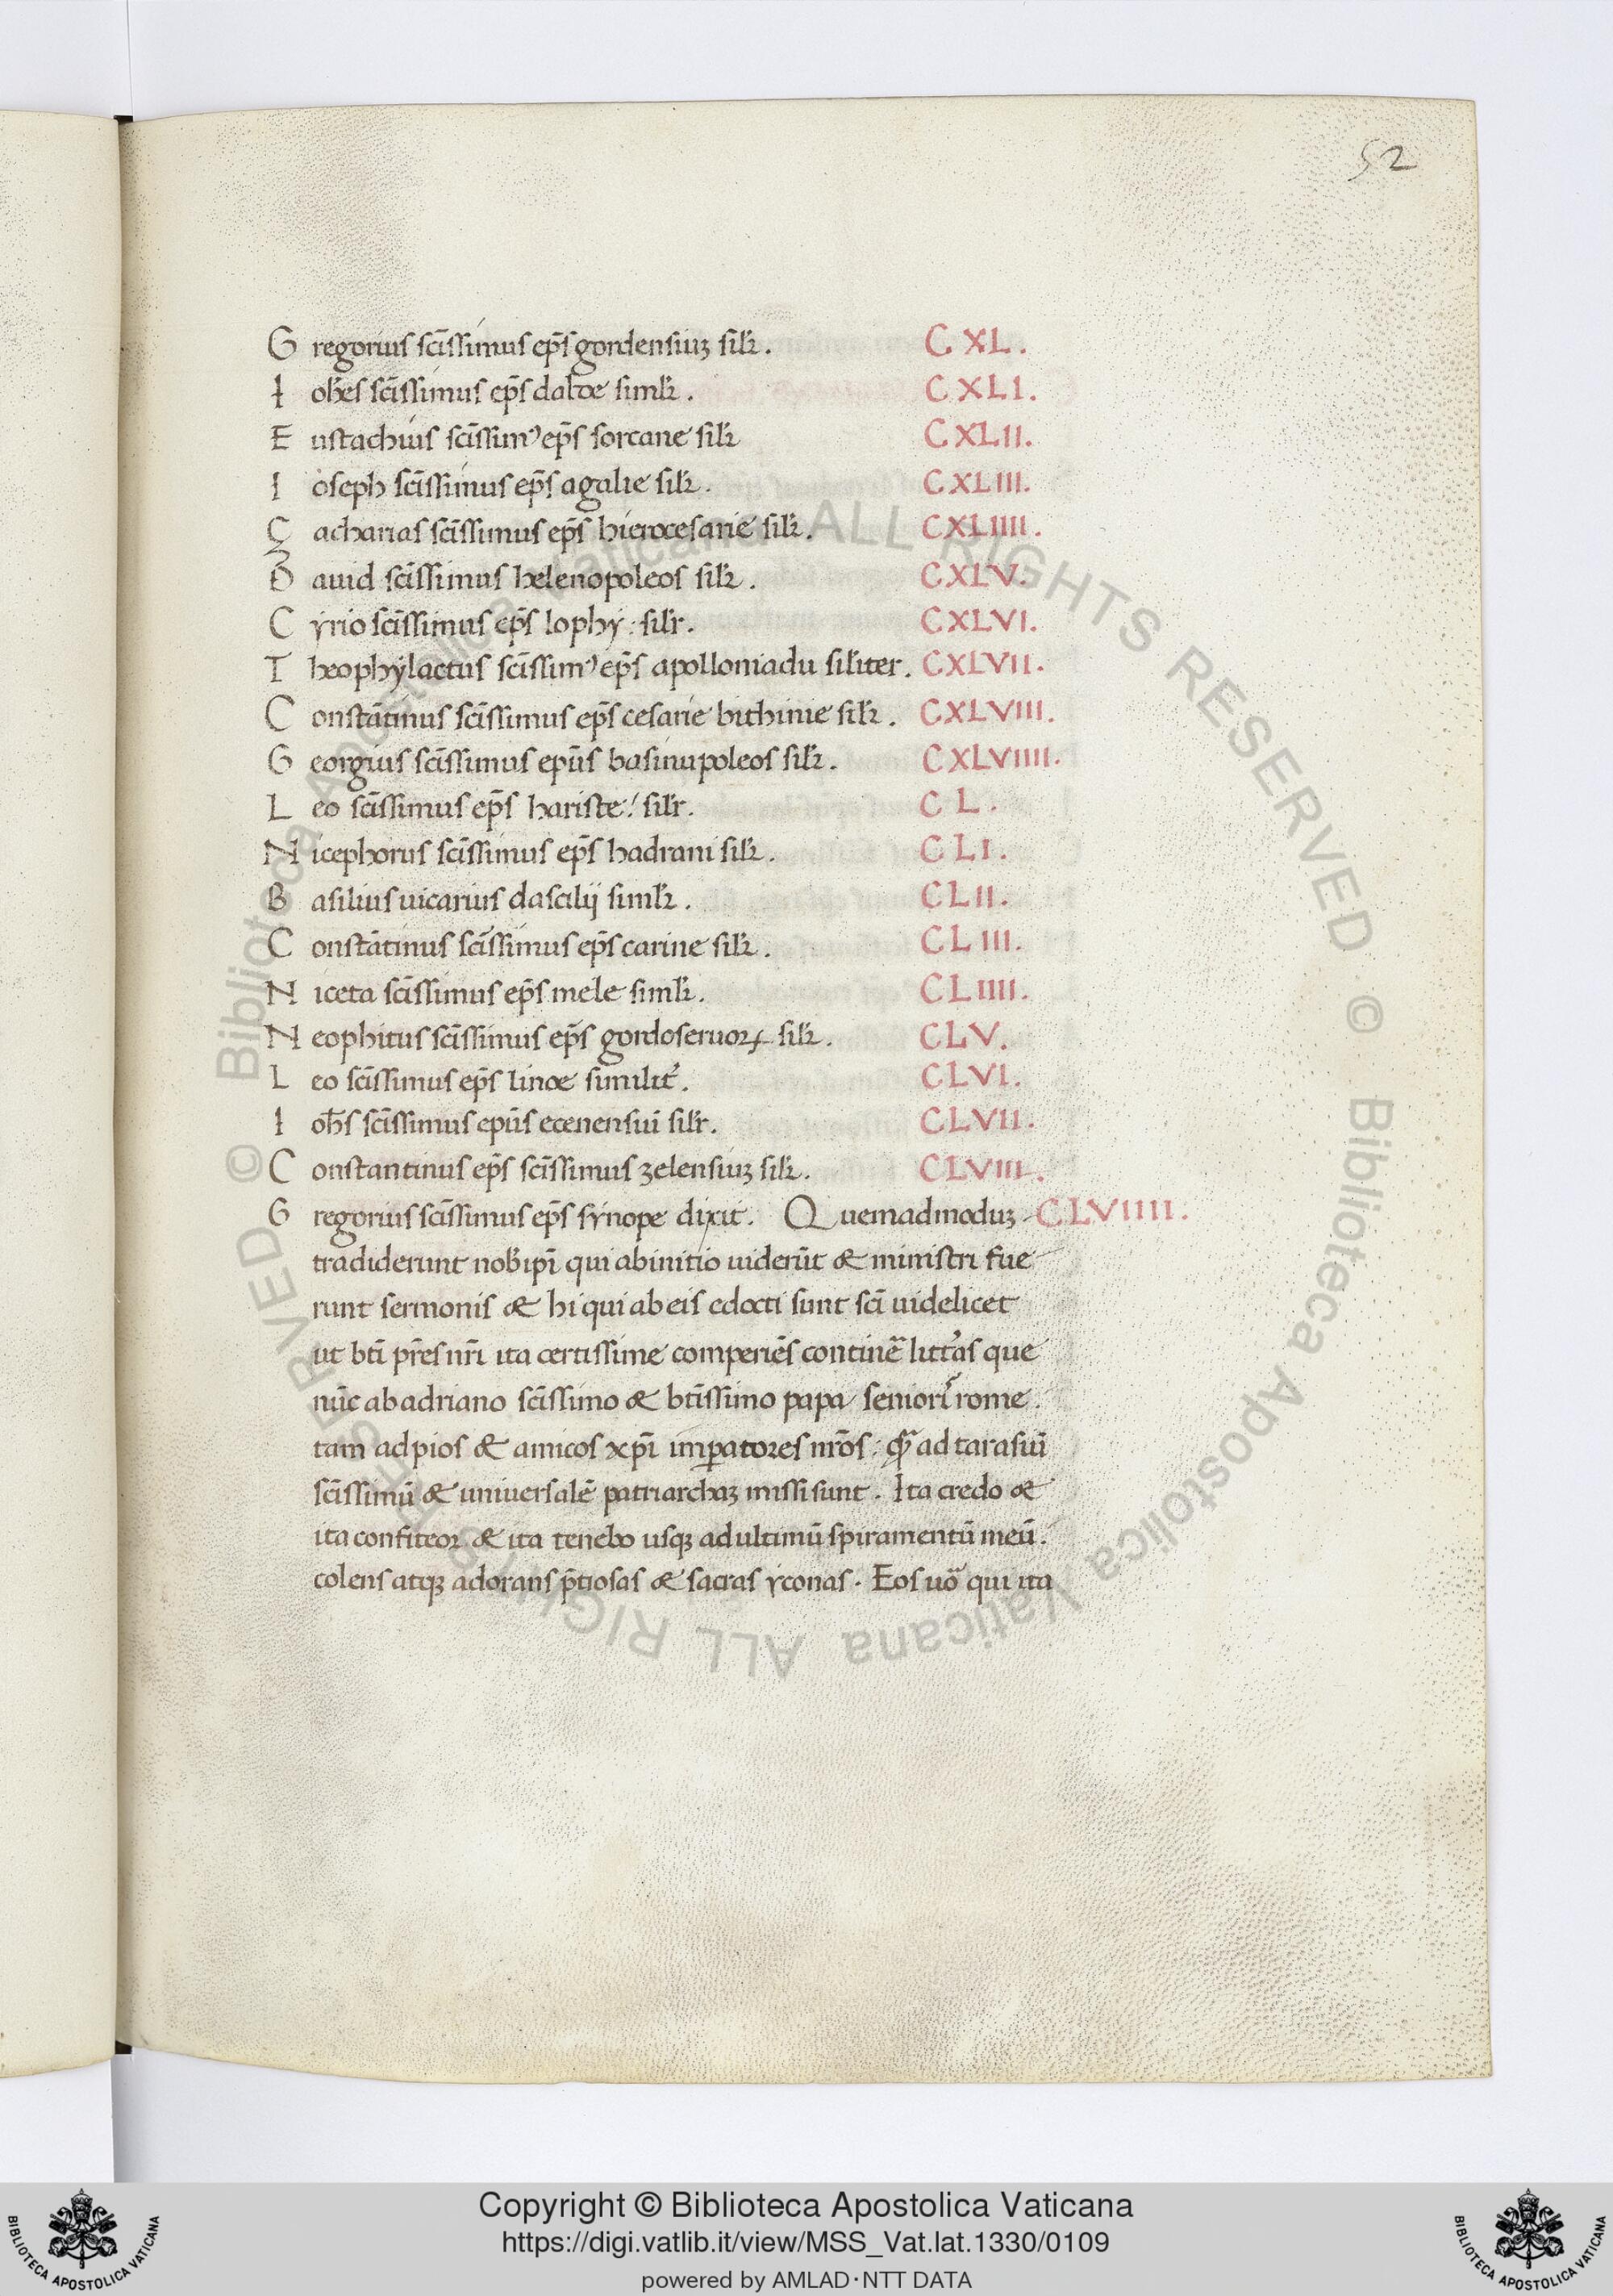 52
Gregorius sci̅ssimus ep̅s gordensiuꝫ silr̅. CXL.
Ioh̅es sci̅ssimus ep̅s daldoe simlr̅. CXLI.
Eustachius sci̅ssimꝰ ep̅s sorcane silr̅ CXLII.
Ioseph sci̅ssimus ep̅s agalie silr̅. CXLIII.
Çacharias sci̅ssimus ep̅s hierocesarie silr̅. CXLIIII.
Dauid sci̅ssimus helenopoleos silr̅. CXLV.
Cyrio sci̅ssimus ep̅s lophy: silr̅. CXLVI.
Theophylactus sci̅ssimꝰ ep̅s apolloniadu sil̅iter. CXLVII.
Consta̅tinus sci̅ssimus ep̅s cesarie bithinie silr̅. CXLVIII.
Georgius sci̅ssimus epu̅s basinupoleos silr̅. CXLVIIII.
Leo sci̅ssimus ep̅s hariste: silr̅. CL.
Nicephorus sci̅ssimus ep̅s hadrani silr̅. CLI.
Basilius uicarius dascilij simlr̅. CLII.
Consta̅tinus sci̅ssimus ep̅s carine silr̅. CLIII.
Niceta sci̅ssimus ep̅s mele simlr̅. CLIIII.
Neophitus sci̅ssimus ep̅s gordoseruoꝝ silr̅. CLV.
Leo sci̅ssimus ep̅s linoe similit̓. CLVI.
Ioh̅s sci̅ssimus epu̅s ecenensiu̅ silr̅. CLVII.
Constantinus ep̅s sci̅ssimus zelensiuꝫ silr̅. CLVIII.
Gregorius sci̅ssimus ep̅s synope dixit. Quemadmoduꝫ CLVIIII.
tradiderunt nob̅ ipi̅ qui abinitio uideru̅t & ministri fue
runt sermonis & hi qui ab eis edocti sunt sci̅ uidelicet
ut bti̅ pr̅es nr̅i ita certissime comperie̅s contine̅ litt̓as que
nu̅c ab adriano sci̅ssimo & bti̅ssimo papa seniori rome.
tam ad pios & amicos xpi̅ imꝑatores nr̅os: qᷓ ad tarasiu̅
sci̅ssimu̅ & uniuersale̅ patriarchaꝫ missi sunt. Ita credo &
ita confiteor & ita tenebo usqꝫ ad ultimu̅ spiramentu̅ meu̅.
colens atqꝫ adorans p̅tiosas & sacras yconas. Eos uo̅ qui ita
Copyright © Biblioteca Apostolica Vaticana
https://digi.vatlib.it/view/MSS_Vat.lat.1330/0109
powered by AMLAD·NTT DATA
BIBLIOTECA APOSTOLICA VATICANA
BIBLIOTECA APOSTOLICA VATICANA
© Biblioteca Apostolica Vaticana ALL RIGHTS RESERVED © Biblioteca Apostolica Vaticana ALL RIGHTS RESERVED